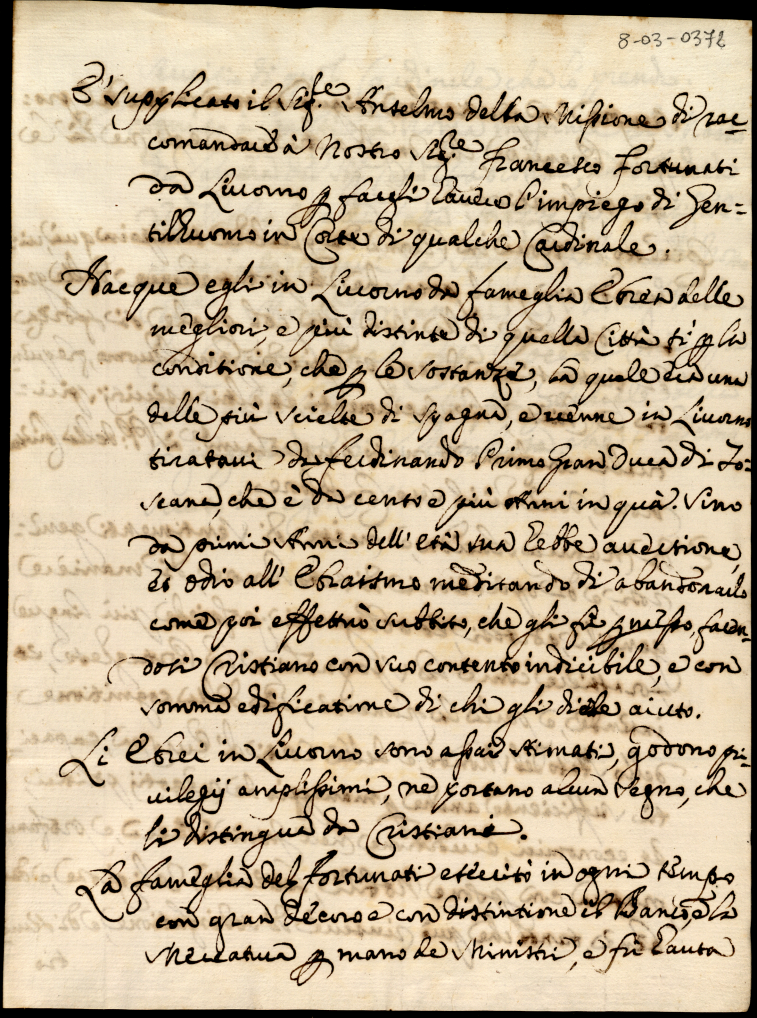 8-03-0372
E' supplicato il Sig.re Anselmo della Missione di rac=
comandare à Nostro Sig.re Francesco Fortunati
da Livorno p fargli havere l'impiego di Gen=
tilhuomo in Corte di qualche Cardinale.
Nacque egli in Livorno da fameglia Ebrea delle
megliori, e più distinte di quella Città sì p la
conditione, che p le sostanze, la quale era una
delle più scielte di Spagna, e venne in Livorno
tiratavi da Ferdinando Primo Gran Duca di To=
scana, che è da cento e più Anni in quà. Sino
da primi Anni dell' età sua hebbe aversione,
et odio all' Ebraismo meditando di abandonarlo
come poi effettuò subbito, che gli fù pmesso, facen=
dosi Cristiano con suo contento indicibile, e con
somma edificatione di chi gli diede aiuto.
Li Ebrei in Livorno sono assai stimati, godono pri=
vilegij amplissimi, ne portano alcun segno, che
li distingua da Cristiani.
La fameglia del Fortunati esercitò in ogni tempo
con gran decoro e con distintione il Banco, e la
Mercatura p mano de Ministri, e fù hauta